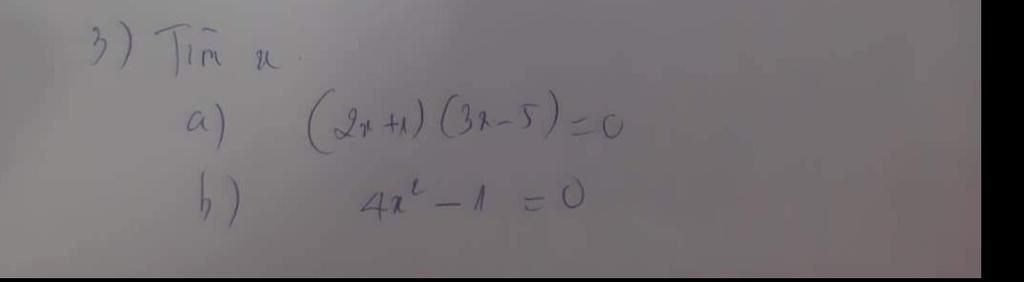 3) Tìm x.
a) (2x+1)(3x-5)=0
b) 4x² - 1 = 0